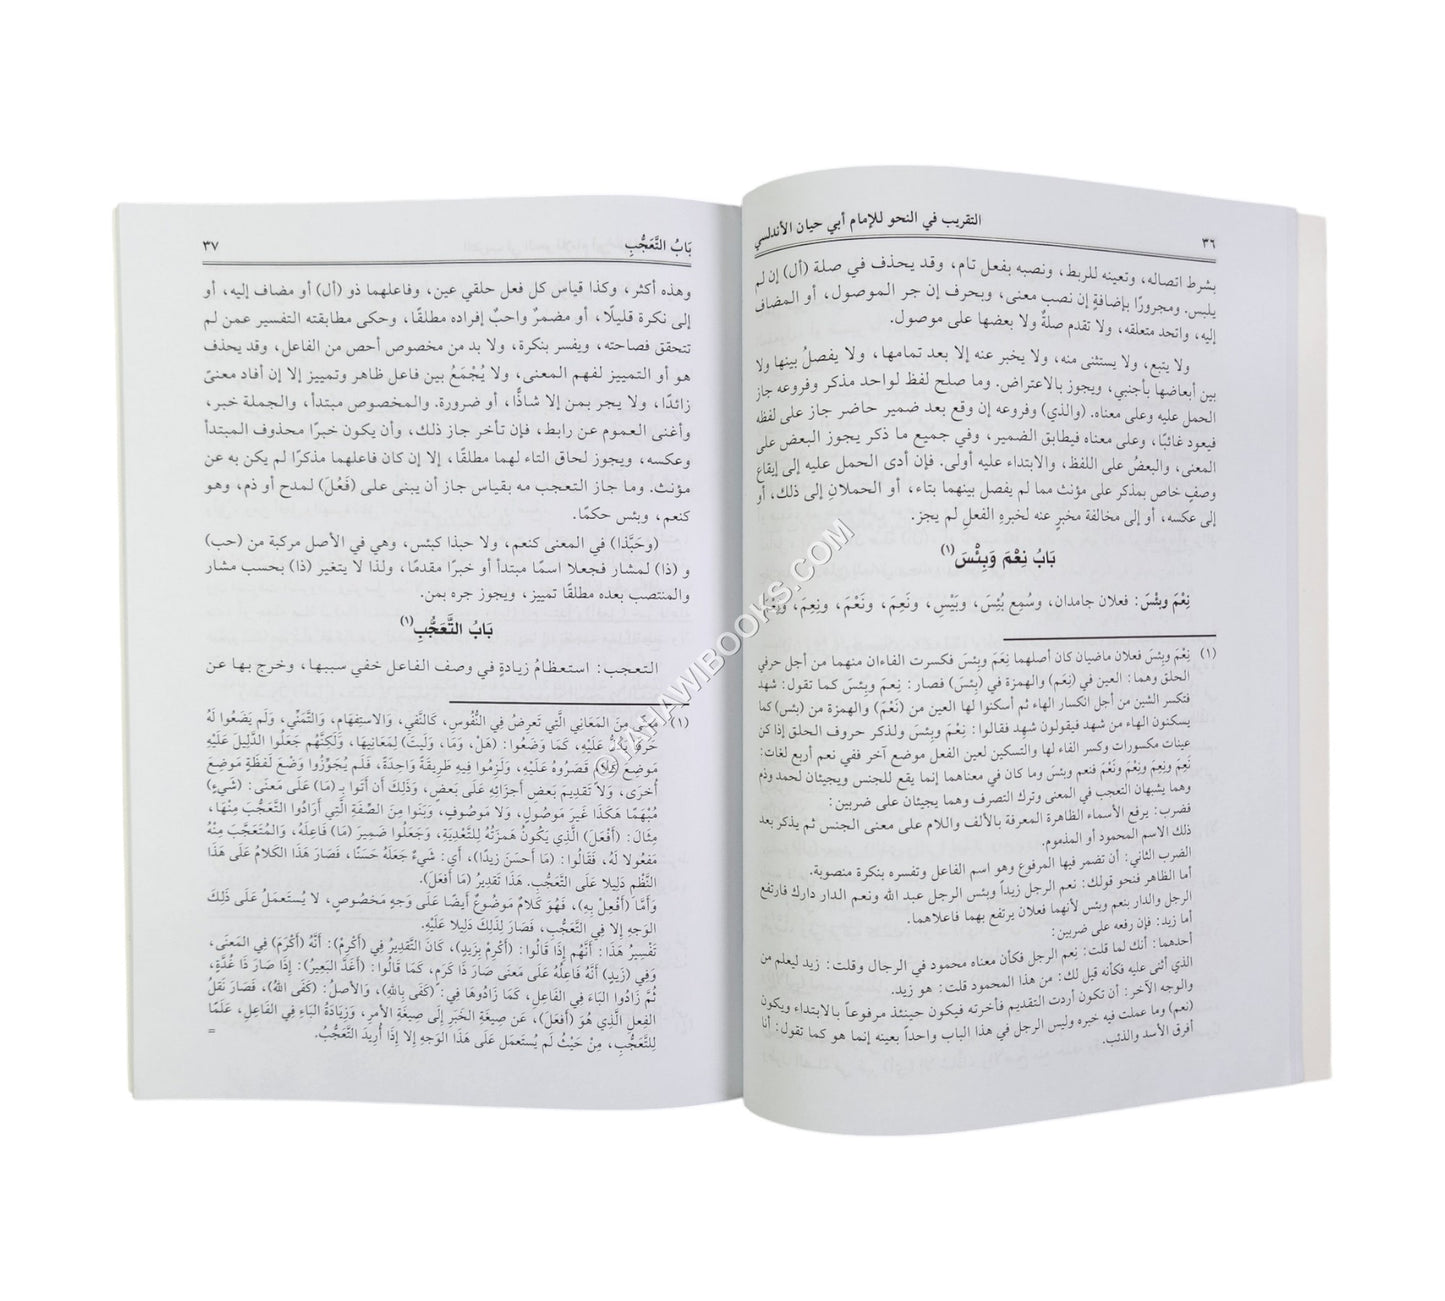 ٣٦
التقريب في النحو للإمام أبي حيان الأندلسي
بشرط اتصاله، وتعينه للربط، ونصبه بفعل تام، وقد يحذف في صلة (أل) إن لم
يلبس. ومجرورًا بإضافةٍ إن نصب معنى، وبحرف إن جر الموصول، أو المضاف
إليه، واتحد متعلقه، ولا تقدم صلةٌ ولا بعضها على موصول.
ولا يتبع، ولا يستثنى منه، ولا يخبر عنه إلا بعد تمامها، ولا يفصلُ بينها ولا
بين أبعاضها بأجنبي، ويجوز بالاعتراض. وما صلح لفظ لواحد مذكر وفروعه جاز
الحمل عليه وعلى معناه. (والذي) وفروعه إن وقع بعد ضمير حاضر جاز على لفظه
فيعود غائبًا، وعلى معناه فيطابق الضمير، وفي جميع ما ذكر يجوز البعض على
المعنى، والبعضُ على اللفظ، والابتداء عليه أولى. فإن أدى الحمل عليه إلى إيقاع
وصفٍ خاص بمذكر على مؤنث مما لم يفصل بينهما بتاء، أو الحملانِ إلى ذلك، أو
إلى عكسه، أو إلى مخالفة مخبرٍ عنه لخبرهِ الفعلِ لم يجز.
بَابُ نِعْمَ وَبِئْسَ(١)
نِعْمَ وبئسَ: فعلان جامدان، وسُمِع بُئِسَ، وبَيْسِ، ونَعِمَ، ونَعْمَ، ونِعِمَ، ونِعْمَ
(١) نِعْمَ وبئسَ فعلان ماضيان كان أصلهما نِعَمَ وبئسَ فكسرت الفاءان منهما من أجل حرفي
الحلق وهما: العين في (نِعَم) والهمزة في (بِئسَ) فصار: نِعِمَ وبِئسَ كما تقول: شهد
فتكسر الشين من أجل انكسار الهاء ثم أسكنوا لها العين من (نَعَمَ) والهمزة من (بئس) كما
يسكنون الهاء من شهد فيقولون شهد فقالوا: نِعْمَ وبئسَ ولذكر حروف الحلق إذا كن
عينات مكسورات وكسر الفاء لها والتسكين لعين الفعل موضع آخر ففي نعم أربع لغات:
نَعِمَ ونِعِمَ ونِعْمَ ونَعْمَ فنعم وبئسَ وما كان في معناهما إنما يقع للجنس ويجيئان لحمد وذم
وهما يشبهان التعجب في المعنى وترك التصرف وهما يجيئان على ضربين:
فضرب: يرفع الأسماء الظاهرة المعرفة بالألف واللام على معنى الجنس ثم يذكر بعد
ذلك الاسم المحمود أو المذموم.
الضرب الثاني: أن تضمر فيها المرفوع وهو اسم الفاعل وتفسره بنكرة منصوبة.
أما الظاهر فنحو قولك: نعم الرجل زيداً وبئس الرجل عبد الله ونعم الدار دارك فارتفع
الرجل والدار بنعم وبئس لأنهما فعلان يرتفع بهما فاعلاهما.
أما زيد: فإن رفعه على ضربين:
أحدهما: أنك لما قلت: نِعم الرجل فكأن معناه محمود في الرجال وقلت: زيد ليعلم من
الذي أثنى عليه فكأنه قيل لك: من هذا المحمود قلت: هو زيد.
والوجه الآخر: أن تكون أردت التقديم فأخرته فيكون حينئذ مرفوعاً بالابتداء ويكون
(نعم) وما عملت فيه خبره وليس الرجل في هذا الباب واحداً بعينه إنما هو كما تقول: أنا
أفرق الأسد والذئب.
بَابُ التَّعَجُّبِ
٣٧
وهذه أكثر، وكذا قياس كل فعل حلقي عين، وفاعلهما ذو (أل) أو مضاف إليه، أو
إلى نكرة قليلًا، أو مضمرٌ واحبٌ إفراده مطلقًا، وحكى مطابقته التفسير عمن لم
تتحقق فصاحته، ويفسر بنكرة، ولا بد من مخصوص أحص من الفاعل، وقد يحذف
هو أو التمييز لفهم المعنى، ولا يُجْمَعُ بين فاعل ظاهر وتمييز إلا إن أفاد معنىً
زائدًا، ولا يجر بمن إلا شاذًّا، أو ضرورة. والمخصوص مبتدأ، والجملة خبر،
وأغنى العموم عن رابط، فإن تأخر جاز ذلك، وأن يكون خبرًا محذوف المبتدأ
وعكسه، ويجوز لحاق التاء لهما مطلقًا، إلا إن كان فاعلهما مذكرًا لم يكن به عن
مؤنث. وما جاز التعجب مه بقياس جاز أن يبنى على (فَعُلَ) لمدح أو ذم، وهو
كنعم، وبئس حكمًا.
(وحَبَّذا) في المعنى كنعم، ولا حبذا كبئس، وهي في الأصل مركبة من (حب)
و (ذا) لمشار فجعلا اسمًا مبتدأ أو خبرًا مقدمًا، ولذا لا يتغير (ذا) بحسب مشار
والمنتصب بعده مطلقًا تمييز، ويجوز جره بمن.
بَابُ التَّعَجُّبِ(١)
التعجب: استعظامُ زيادةٍ في وصف الفاعل خفي سببها، وخرج بها عن
(١) مَعْنًى مِنَ المَعَانِي الَّتِي تَعرِضُ فِي النُّفُوسِ، كَالنَّفيِ، وَالاستِفهَامِ، وَالتَّمَنِّي، وَلَم يَضَعُوا لَهُ
حَرفًا يَدُلُّ عَلَيْهِ، كَمَا وَضَعُوا: (هَلْ، وَمَا، وَلَيتَ) لِمَعَانِيهَا، وَلَكِنَّهُم جَعَلُوا الدَّلِيلَ عَلَيْهِ
مَوضِعَ كَلَامٍ قَصَرُوهُ عَلَيْهِ، وَلَزِمُوا فِيهِ طَرِيقَةً وَاحِدَةً، فَلَم يُجَوِّزُوا وَضعَ لَفظَةٍ مَوضِعَ
أُخرَى، وَلَا تَقدِيمَ بَعضِ أَجزَائِهِ عَلَى بَعضٍ، وَذَلِكَ أَن أَتَوا بِـ (مَا) عَلَى مَعنَى: (شَيءٍ)
مُبْهَمًا هَكَذَا غَيرَ مَوصُولٍ، وَلَا مَوصُوفٍ، وَبَنَوا مِنَ الصِّفَةِ الَّتِي أَرَادُوا التَّعَجُّبَ مِنهَا،
مِثَالَ: (أَفْعَلَ) الَّذِي يَكُونُ هَمزَتُهُ لِلتَّعْدِيَةِ، وَجَعَلُوا ضَمِيرَ (مَا) فَاعِلَهُ، وَالمُتَعَجَّبَ مِنْهُ
مَفعُولا لَهُ، فَقَالُوا: (مَا أَحسَنَ زَيدًا)، أَي: شَيءٌ جَعَلَهُ حَسَنًا، فَصَارَ هَذَا الكَلَامُ عَلَى هَذَا
النَّظْمِ دَلِيلا عَلَى التَّعَجُّبِ. هَذَا تَقدِيرُ (مَا أَفعَلَ).
وَأَمَّا (أَفْعِلْ بِهِ)، فَهُوَ كَلامٌ مَوضُوعٌ أَيضًا عَلَى وَجهٍ مَخصُوصٍ، لا يُستَعمَلُ عَلَى ذَلِكَ
الوَجهِ إلا فِي التَّعَجُّبِ، فَصَارَ لِذَلِكَ دَلِيلا عَلَيْهِ.
تَفْسِيرُ هَذَا: أَنَّهُم إِذَا قَالُوا: (أَكْرِمْ بِزَيدٍ)، كَانَ التَّقدِيرُ فِي (أَكْرِمْ): أَنَّهُ (أَكْرَمَ) فِي المَعنَى،
وَفِي (زَيدٍ) أَنَّهُ فَاعِلُهُ عَلَى مَعنَى صَارَ ذَا كَرَمٍ، كَمَا قَالُوا: (أَغَدَّ البَعيرُ): إِذَا صَارَ ذَا غُدَّةٍ،
ثُمَّ زَادُوا البَاءَ فِي الفَاعِلِ، كَمَا زَادُوهَا فِي: (كَفَى بِاللهِ)، وَالأصلُ: (كَفَى اللهُ)، فَصَارَ نَقلُ
الفِعلِ الَّذِي هُوَ (أَفعَلَ)، عَن صِيغَةِ الخَبَرِ إِلَى صِيغَةِ الأمرِ، وَزِيَادَةُ البَاءِ فِي الفَاعِلِ، عَلَمًا
لِلتَّعَجُّبِ، مِنْ حَيثُ لَم يُستَعمَل عَلَى هَذَا الوَجهِ إِلا إِذَا أُرِيدَ التَّعَجُّبُ. =
©TAHAWIBOOKS.COM